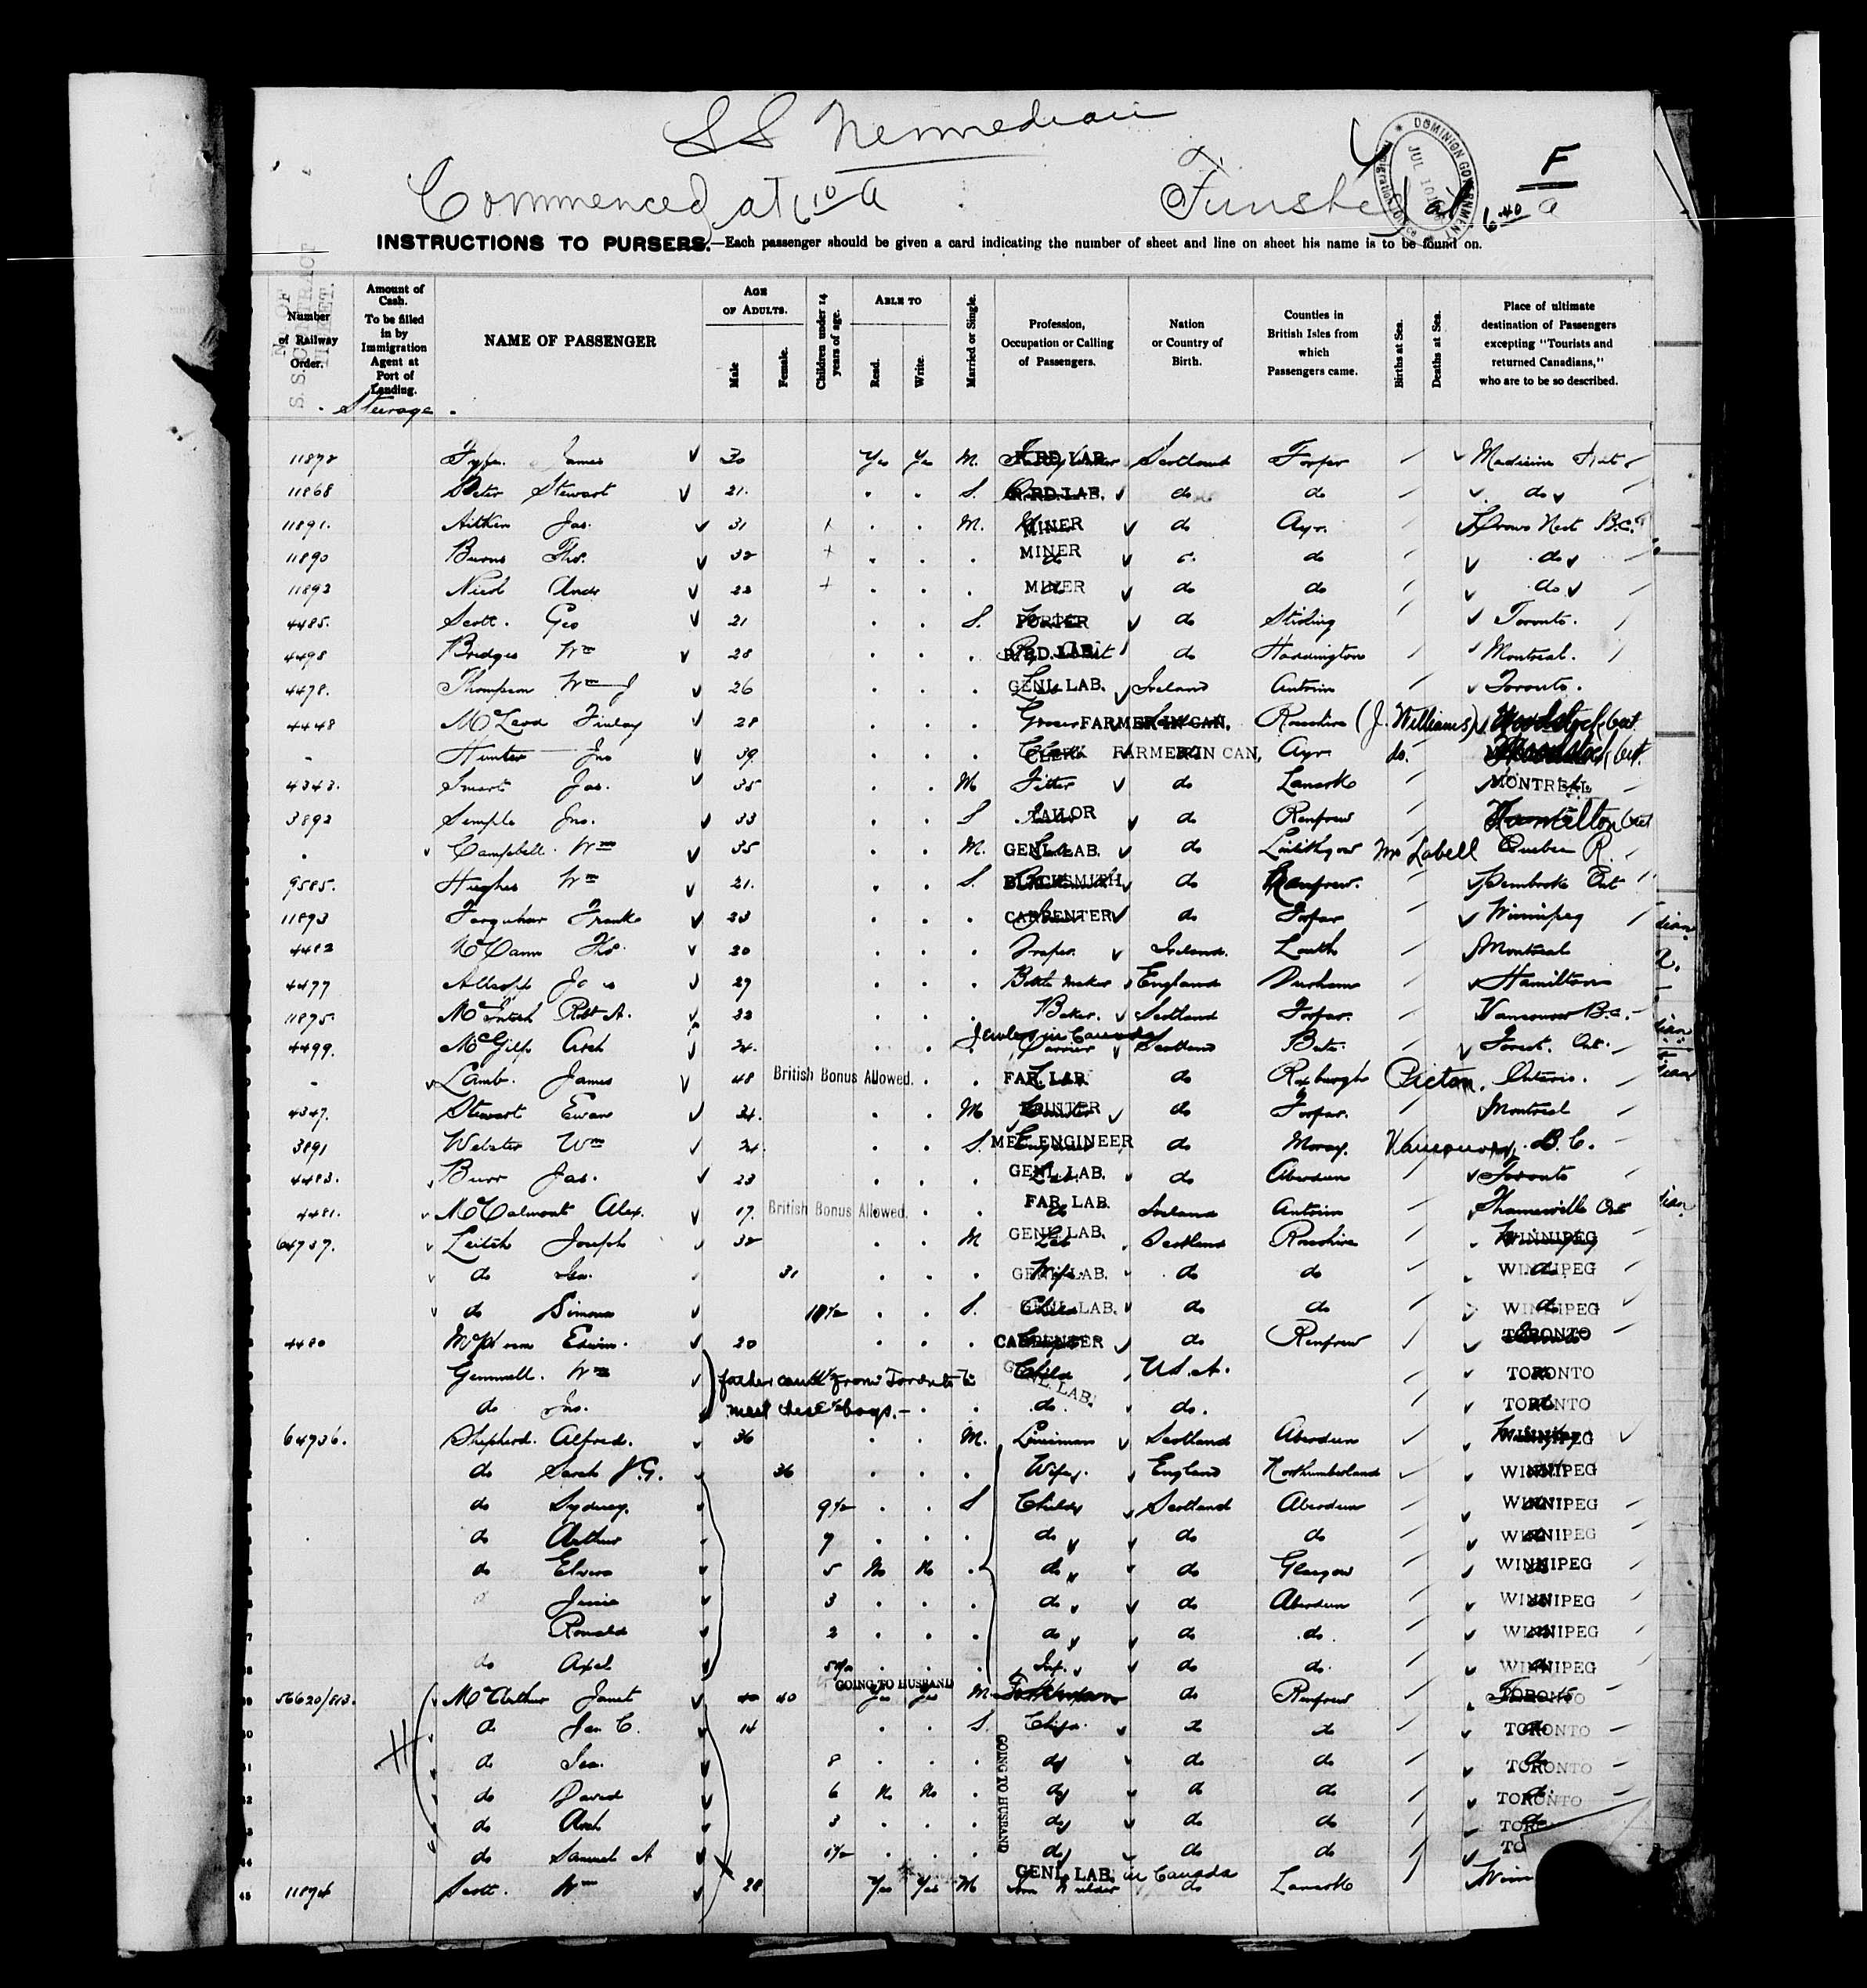 SS Numedian
Commenced at 6 10 a Finished at 6.40 a
F
DOMINION GOVERNMENT
JUL 10
INSTRUCTIONS TO PURSERS.—Each passenger should be given a card indicating the number of sheet and line on sheet his name is to be found on.
Number of Railway Order. Amount of Cash. To be filled in by Immigration Agent at Port of Landing. NAME OF PASSENGER AGE OF ADULTS. Male Female. Children under 14 years of age. ABLE TO Read. Write. Married or Single. Profession, Occupation or Calling of Passengers. Nation or Country of Birth. Counties in British Isles from which Passengers came. Births at Sea. Deaths at Sea. Place of ultimate destination of Passengers excepting "Tourists and returned Canadians," who are to be so described.
Steerage
11872 James 30 Yes Yes M. R.RD. LAB. Scotland Forfar Medicine Hat
11868 Peter Stewart 21. S. R.RD. LAB. do do do
11891. Aitken Jas. 31 M. MINER do Ayr. Crows Nest B.C.
11890 Burns Tho. 32 MINER do do
11892 Nicol Andr 22 MINER do do do
4485. Scott. Geo 21 S. PORTER do Stirling Toronto.
4498 Bridges Wm 28 R.RD. LAB. do Haddington Montreal.
4478. Thompson Wm J 26 GENL. LAB. Ireland Antrim Toronto.
4448 McLeod Finlay 28 Grocer FARMER IN CAN. Rosshire (J. Williams) Woodstock Ont
Hunter Jno 39 CLERK FARMER IN CAN. Ayr do. Woodstock, Ont.
4343. Smart Jas. 35 M Fitter do Lanark MONTREAL
3892 Semple Jno. 33 S TAILOR do Renfrew Hamilton Ont
Campbell. Wm 35 M. GENL. LAB. do Linlithgow Mr Labell Quebec R.
9585. Hughes Wm 21. S. BLACKSMITH do Renfrew. Pembroke Ont
11893 Farquhar Frank 23 CARPENTER do Forfar Winnipeg
4482 McCann Tho 20 Draper Ireland. Louth Montreal
4477 Allsopp 29 Bottle maker England Durham Hamilton
11875. McIntosh Robt A. 22 Baker. Scotland Forfar. Vancouver B.C.
4499. Arch 24. Carrier Scotland Bute. Forest. Ont.
Lamb. James 48 British Bonus Allowed. FAR. LAB. do Roxburgh Picton, Ontario.
4347. Stewart Ewan 24. M PRINTER do Forfar. Montreal
3891 Webster Wm 24. S. MEC. ENGINEER do Moray. Vancouver, B.C.
4483. Burr Jas. 23 GENL. LAB. do Aberdeen Toronto
4481. McCalmont Alex. 17. British Bonus Allowed. FAR. LAB. Ireland Antrim Thamesville Ont
64737. Leitch Joseph 32 M GENL. LAB. Scotland Rosshire WINNIPEG
do 31 Wife GENL. LAB. do do WINNIPEG
do Simon S. Child GENL. LAB. do do WINNIPEG
4480 Edwin. 20 CARPENTER do Renfrew TORONTO
Gemmell. Wm father came from Toronto to Child GENL. LAB. U.S.A. TORONTO
do Jno. meet these boys.— do. do. TORONTO
64736. Shepherd. Alfred. 36 M. Lineman Scotland Aberdeen WINNIPEG
do Sarah J.G. 36 Wife. England Northumberland WINNIPEG
do Sydney. 9 S Child Scotland Aberdeen WINNIPEG
do Arthur 7 do do do WINNIPEG
do 5 No No do do Glasgow WINNIPEG
Jessie 3 do do Aberdeen WINNIPEG
Ronald 2 do do do. WINNIPEG
do Axel Inf. do do. WINNIPEG
56620/813. McArthur Janet 40 GOING TO HUSBAND Yes Yes M do Renfrew TORONTO
do Jan C. 14 S. do do TORONTO
do 8 do do do TORONTO
do David 6 No No do do do TORONTO
do Arch 3 do do do
do Samuel A do do do
GOING TO HUSBAND
11874 Scott. Wm 28 Yes Yes M GENL. LAB. in Canada do Lanark Winn